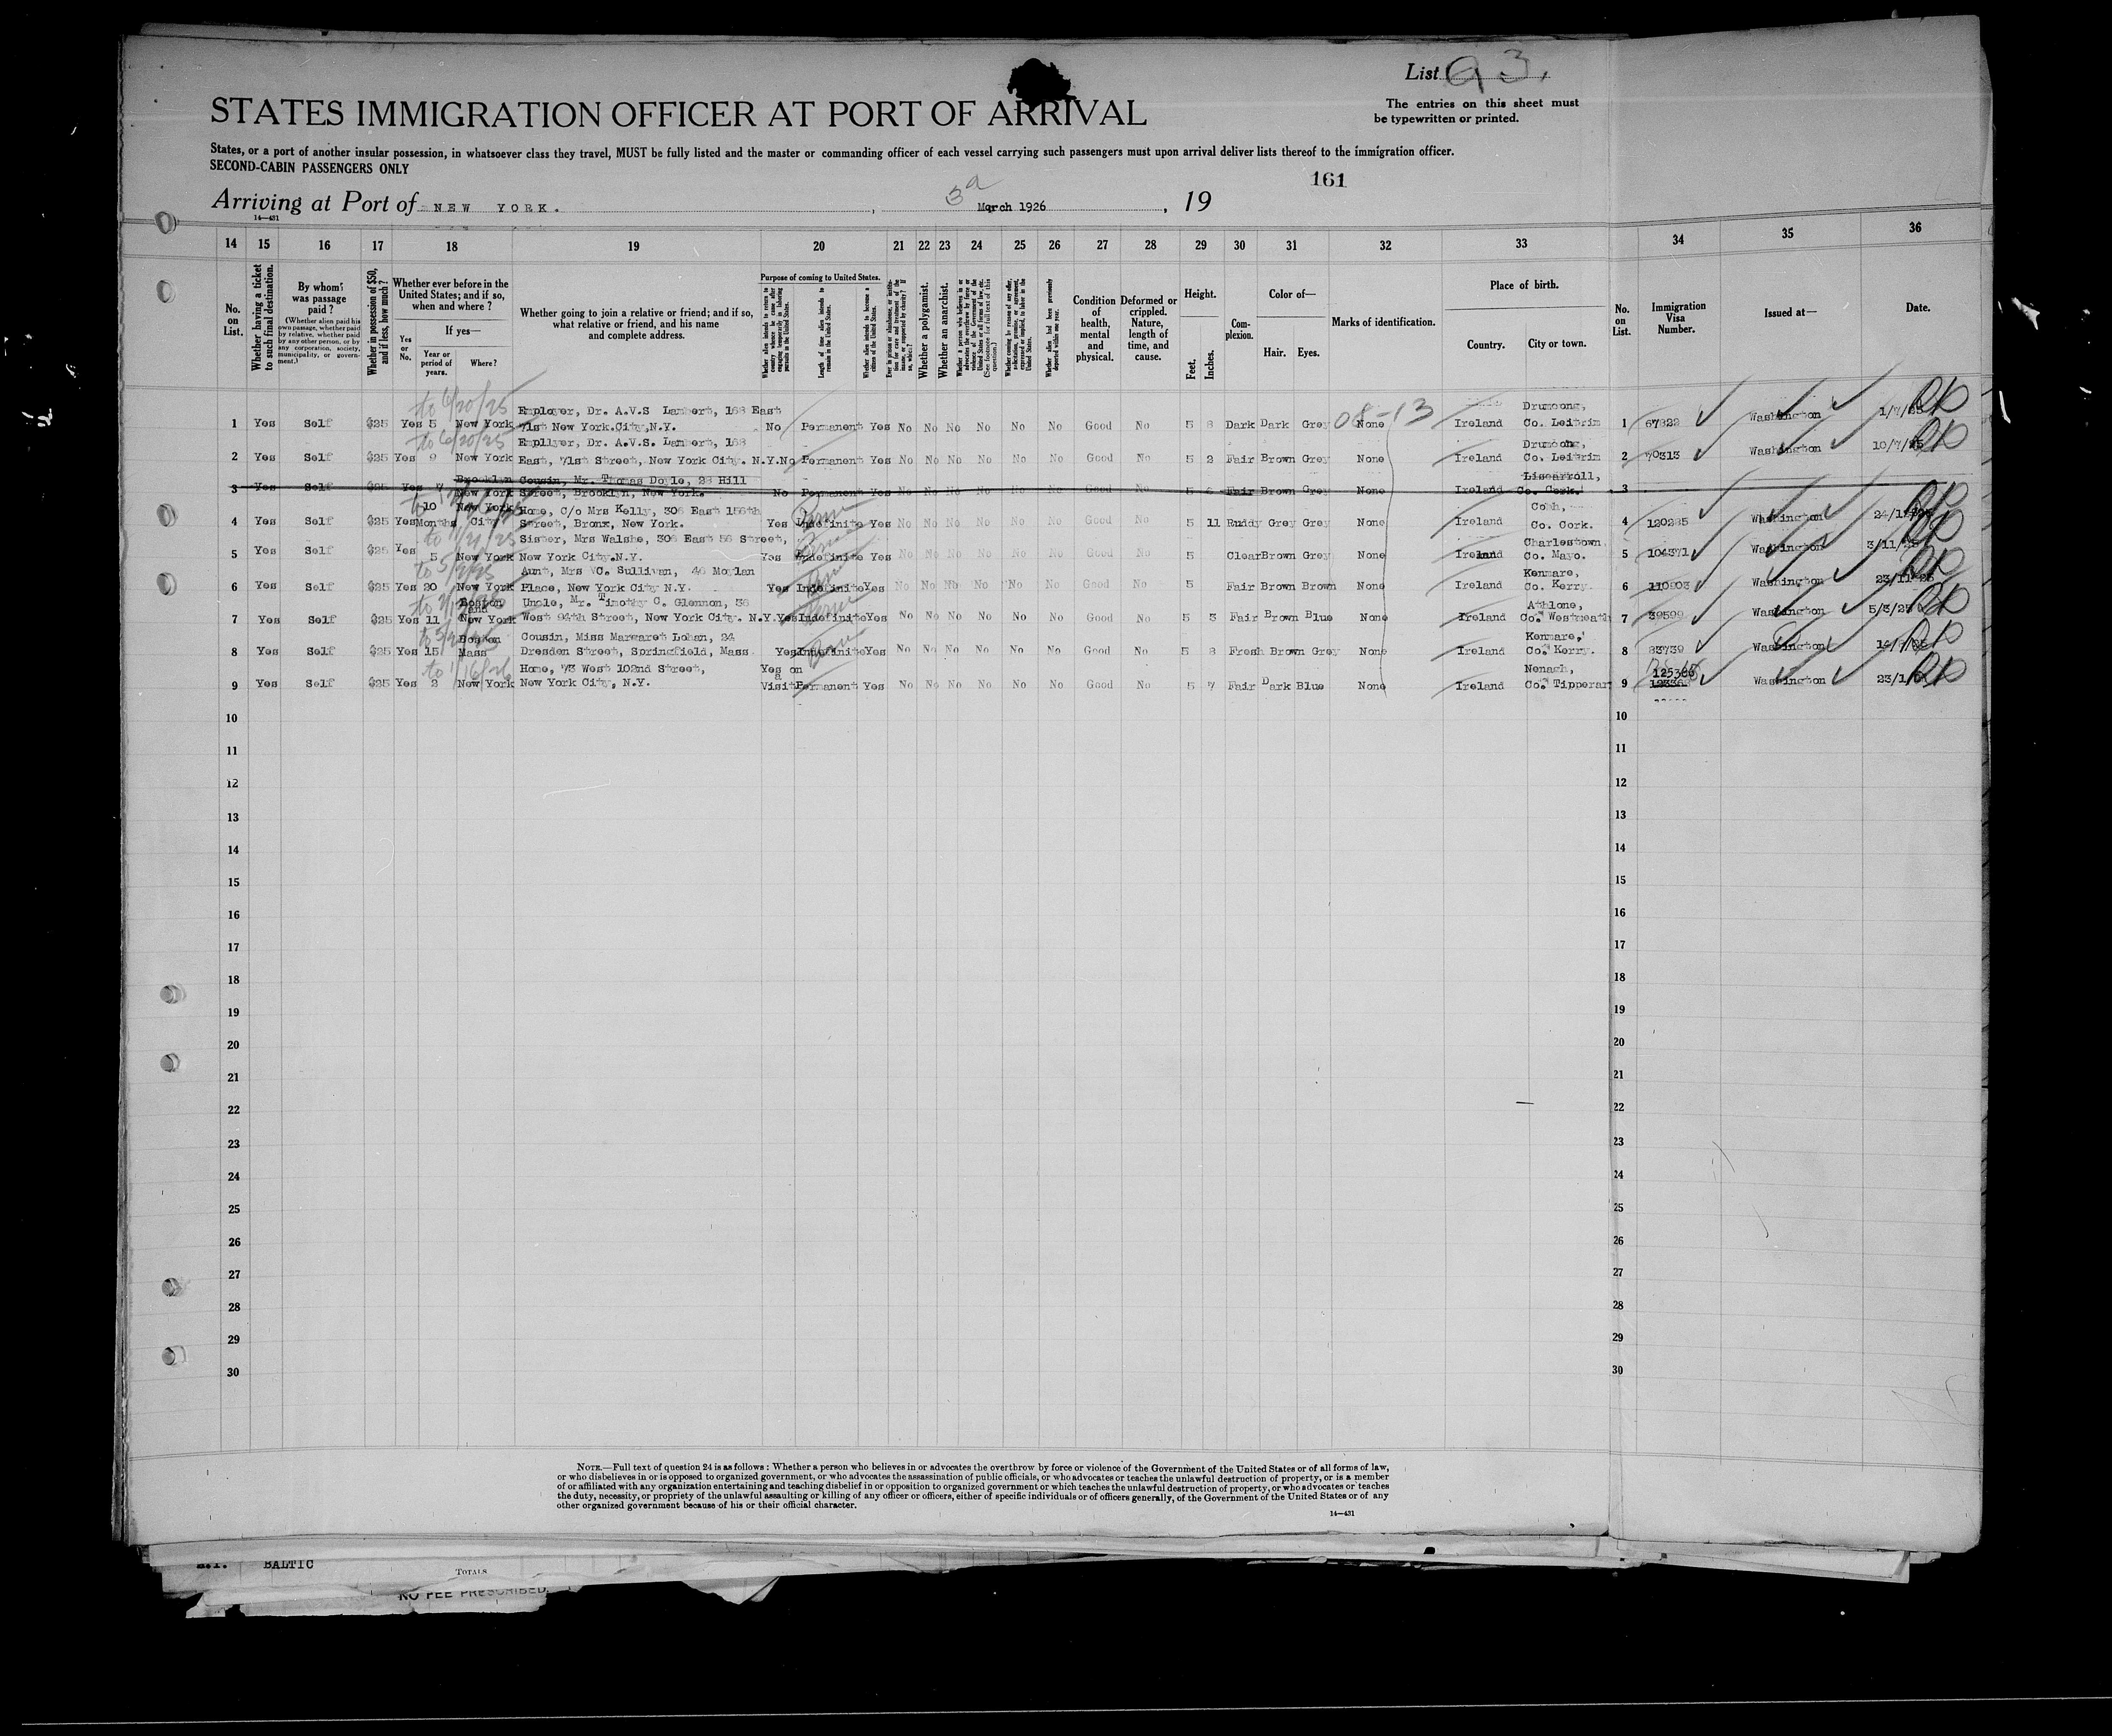 List 93.
The entries on this sheet must
be typewritten or printed.
STATES IMMIGRATION OFFICER AT PORT OF ARRIVAL
States, or a port of another insular possession, in whatsoever class they travel, MUST be fully listed and the master or commanding officer of each vessel carrying such passengers must upon arrival deliver lists thereof to the immigration officer.
SECOND-CABIN PASSENGERS ONLY
161
Arriving at Port of NEW YORK. , 3 March 1926 , 19
14—431
14 15 16 17 18 19 20 21 22 23 24 25 26 27 28 29 30 31 32 33 34 35 36
No. on List.
Whether having a ticket to such final destination.
By whom was passage paid?
(Whether alien paid his own passage, whether paid by relative, whether paid by any other person, or by any corporation, society, municipality, or government.)
Whether in possession of $50, and if less, how much?
Whether ever before in the United States; and if so, when and where?
Yes or No.
If yes—
Year or period of years.
Where?
Whether going to join a relative or friend; and if so, what relative or friend, and his name and complete address.
Purpose of coming to United States.
Whether alien intends to return to country whence he came after engaging temporarily in laboring pursuits in the United States.
Length of time alien intends to remain in the United States.
Whether alien intends to become a citizen of the United States.
Ever in prison or almshouse, or institution for care and treatment of the insane, or supported by charity? If so, which?
Whether a polygamist.
Whether an anarchist.
Whether a person who believes in or advocates the overthrow by force or violence of the Government of the United States or all forms of law, etc. (See footnote for full text of this question.)
Whether coming by reason of any offer, solicitation, promise, or agreement, expressed or implied, to labor in the United States.
Whether alien had been previously deported within one year.
Condition of health, mental and physical.
Deformed or crippled. Nature, length of time, and cause.
Height.
Feet. Inches.
Complexion.
Color of—
Hair. Eyes.
Marks of identification.
Place of birth.
Country. City or town.
No. on List.
Immigration Visa Number.
Issued at—
Date.
to 6/20/25 Employer, Dr. A.V.S Lambert, 168 East 08-13 Drumcong,
1 Yes Self $25 Yes 5 New York 71st New York.City,N.Y. No Permanent Yes No No No No No No Good No 5 8 Dark Dark Grey None Ireland Co. Leitrim 1 67822 Washington
to 6/20/25 Empllyer, Dr. A.V.S. Lambert, 168 Drumcong,
2 Yes Self $25 Yes 9 New York East, 71st Street, New York City. N.Y. No Permanent Yes No No No No No No Good No 5 2 Fair Brown Grey None Ireland Co. Leitrim 2 70313 Washington
Brooklyn Cousin, Mr. Thomas Doyle, 28 Hill Liscarroll,
3 Yes Self $25 Yes 7 New York Street, Brooklyn, New York. No Permanent Yes No No No No No No Good No 5 Fair Brown Grey None Ireland Co. Cork. 3
10 New York Home, C/o Mrs Kelly, 306 East 156th Cobh,
4 Yes Self $25 Yes Months City Street, Bronx, New York. Yes Indefinite Yes No No No No No No Good No 5 11 Ruddy Grey Grey None Ireland Co. Cork. 4 120285 Washington
Sister, Mrs Walshe, 306 East 56 Street, Charlestown
5 Yes Self $25 Yes 5 New York New York City.N.Y. Yes Indefinite Yes No No No No No No Good No 5 Clear Brown Grey None Ireland Co. Mayo. 5 104371 Washington
Aunt, Mrs C. Sullivan, 46 Moylan Kenmare,
6 Yes Self $25 Yes 20 New York Place, New York City N.Y. Yes Indefinite Yes No No No No No No Good No 5 Fair Brown Brown None Ireland Co. Kerry. 6 110803 Washington
Boston and Uncle, Mr. Timothy C. Glennon, 36 Athlone,
7 Yes Self $25 Yes 11 New York West 94th Street, New York City. N.Y. Yes Indefinite Yes No No No No No No Good No 5 3 Fair Brown Blue None Ireland Co. Westmeath 7 39599 Washington
Boston Cousin, Miss Margaret Lohan, 24 Kenmare,
8 Yes Self $25 Yes 15 Mass Dresden Street, Springfield, Mass. Yes Indefinite Yes No No No No No No Good No 5 8 Fresh Brown Grey None Ireland Co. Kerry. 8 83739 Washington
to 1/16/26 Home, 73 West 102nd Street, Yes on a Nenagh, 125366
9 Yes Self $25 Yes 2 New York New York City, N.Y. Visit Permanent Yes No No No No No No Good No 5 7 Fair Dark Blue None Ireland Co. Tipperary 9 Washington
10 10
11 11
12 12
13 13
14 14
15 15
16 16
17 17
18 18
19 19
20 20
21 21
22 22
23 23
24 24
25 25
26 26
27 27
28 28
29 29
30 30
NOTE.—Full text of question 24 is as follows: Whether a person who believes in or advocates the overthrow by force or violence of the Government of the United States or of all forms of law,
or who disbelieves in or is opposed to organized government, or who advocates the assassination of public officials, or who advocates or teaches the unlawful destruction of property, or is a member
of or affiliated with any organization entertaining and teaching disbelief in or opposition to organized government or which teaches the unlawful destruction of property, or who advocates or teaches
the duty, necessity, or propriety of the unlawful assaulting or killing of any officer or officers, either of specific individuals or of officers generally, of the Government of the United States or of any
other organized government because of his or their official character.
14—431
BALTIC
TOTALS
NO FEE PRESCRIBED.